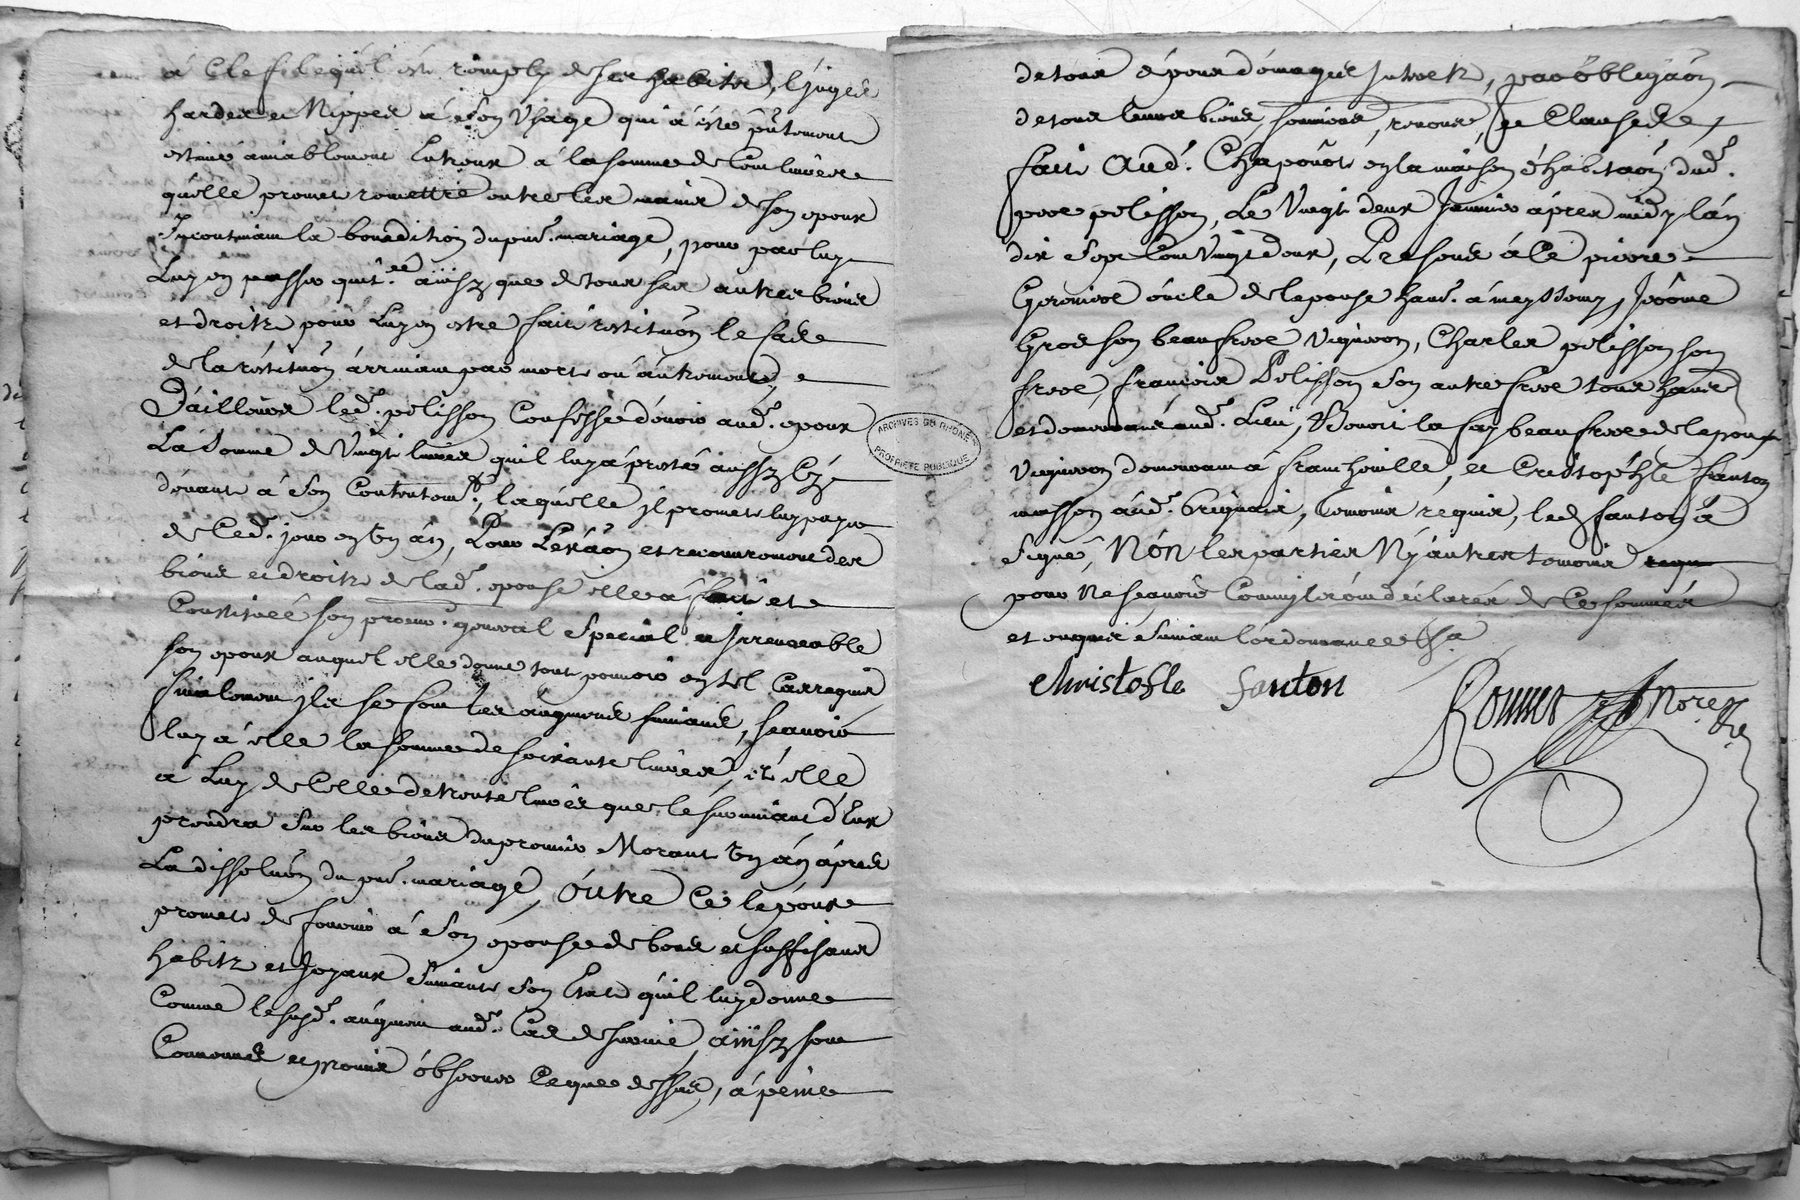 à Clef lequel est remply de ses habits, linges
hardes et Nippes à son Usage qui a esté pntemont
estimé amiablemont Entreux à la somme de Cent livres
qu'elle promet remettre entre les mains de son epoux
Incontinam la benedition du pnt. mariage, pour par luy
Luy en passer quitce. ainsy que de tous ses autres biens
et droits pour Luy en estre fait restituôn le Cas de
de la réstituôn arrivam par mort ou autremont,
D'ailleurs led. pelisson Confesse devoir aud. epoux
La somme de Vingt livres quil luy a presté aussy Cy
devant à son Contentemt., laquelle jl promet luy payer
de Ced. jour en Un an, Pour L'exâon et recouvremont des
biens et droits de lad. epouse elle a fait et
Constitué son procur. general special et Irrevocable
son epoux auquel elle donne tout pouvoir en tel Cas requis
finalemont jls se sont les augmens suivans, scavoir
luy à elle la somme de soixante livres, et elle
à Luy de Celle de trente livres que le survivant d'Eux
prendra sur les biens du premier Morant Un an aprés
La dissoluôn du pnt. mariage, Outre Ce lepoux
promet de fournir à son epouse de bons et suffisans
habits et Joyaux suivant son Etat qu'il luy donne
Comme le susd. augment aud. Cas de survie, ainsy sont
Convenus et promis observer Ce que dessus, à peine
de tous dépens domages Interets, par obligâon
de tous leurs biens, soumions, renons, et Clauses
fait Aud. Chaponôst en la maison d'habitâon dud.
pere pelisson, Le Vingt deux Janvier après midy lan
dix Sept Cent Vingt deux, Presens à Ce pierre
oncle de lepouse hant. à meyssemy, Jerôme
Gros son beaufrere Vigneron, Charles pelisson son
frere, francois Pelisson son autre frere tous hans
et demeurans aud. Lieu, Benoit la fay beaufrere de lepoux
Vigneron demeurant à francheville, et Cristophle fanton
masson aud. Brignais, temoins requis, led. fanton a
Signé, Non les parties Ny autres temoins
pour Ne scavoir Comm'jls ont déclaré de Ce sommés
et enquis suivam lordonnance
ARCHIVES DU RHÔNE
PROPRIÉTÉ PUBLIQUE
Christofle fanton
Nore